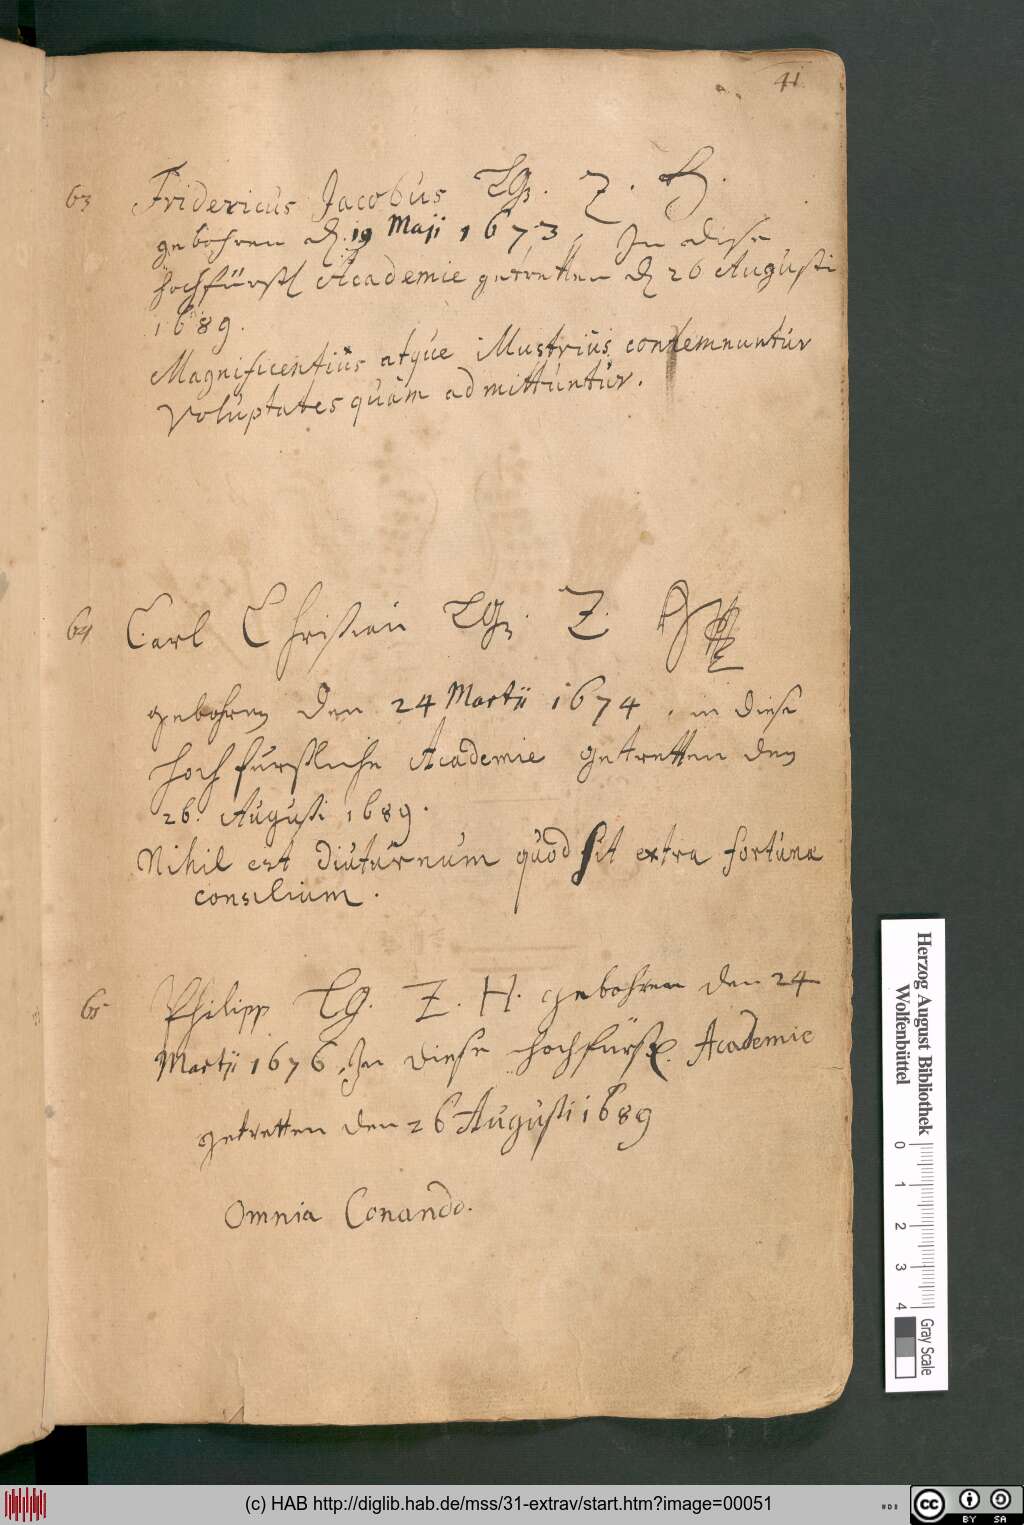 41
63 Fridericus Jacobus LG. Z. H.
gebohren d. 19 Maji 1673, In diese
hochfürstl Academie getretten d 26 Augusti
1689.
Magnificentius atque illustrius contemnuntur
Voluptates quàm admittuntur.
64 Carl Christian LG. Z.
gebohren den 24 Martij 1674, in diese
hochfurstliche Academie getretten den
26. Augusti 1689.
Nihil est diuturnum quod sit extra fortunæ
consilium.
65 Philipp LG. Z. H. gebohren den 24
Martij 1676, In diese hochfürstl. Academie
getretten den 26 Augusti 1689
Omnia Conando.
Herzog August Bibliothek
Wolfenbüttel
0 1 2 3 4
Gray Scale
(c) HAB http://diglib.hab.de/mss/31-extrav/start.htm?image=00051
cc BY SA